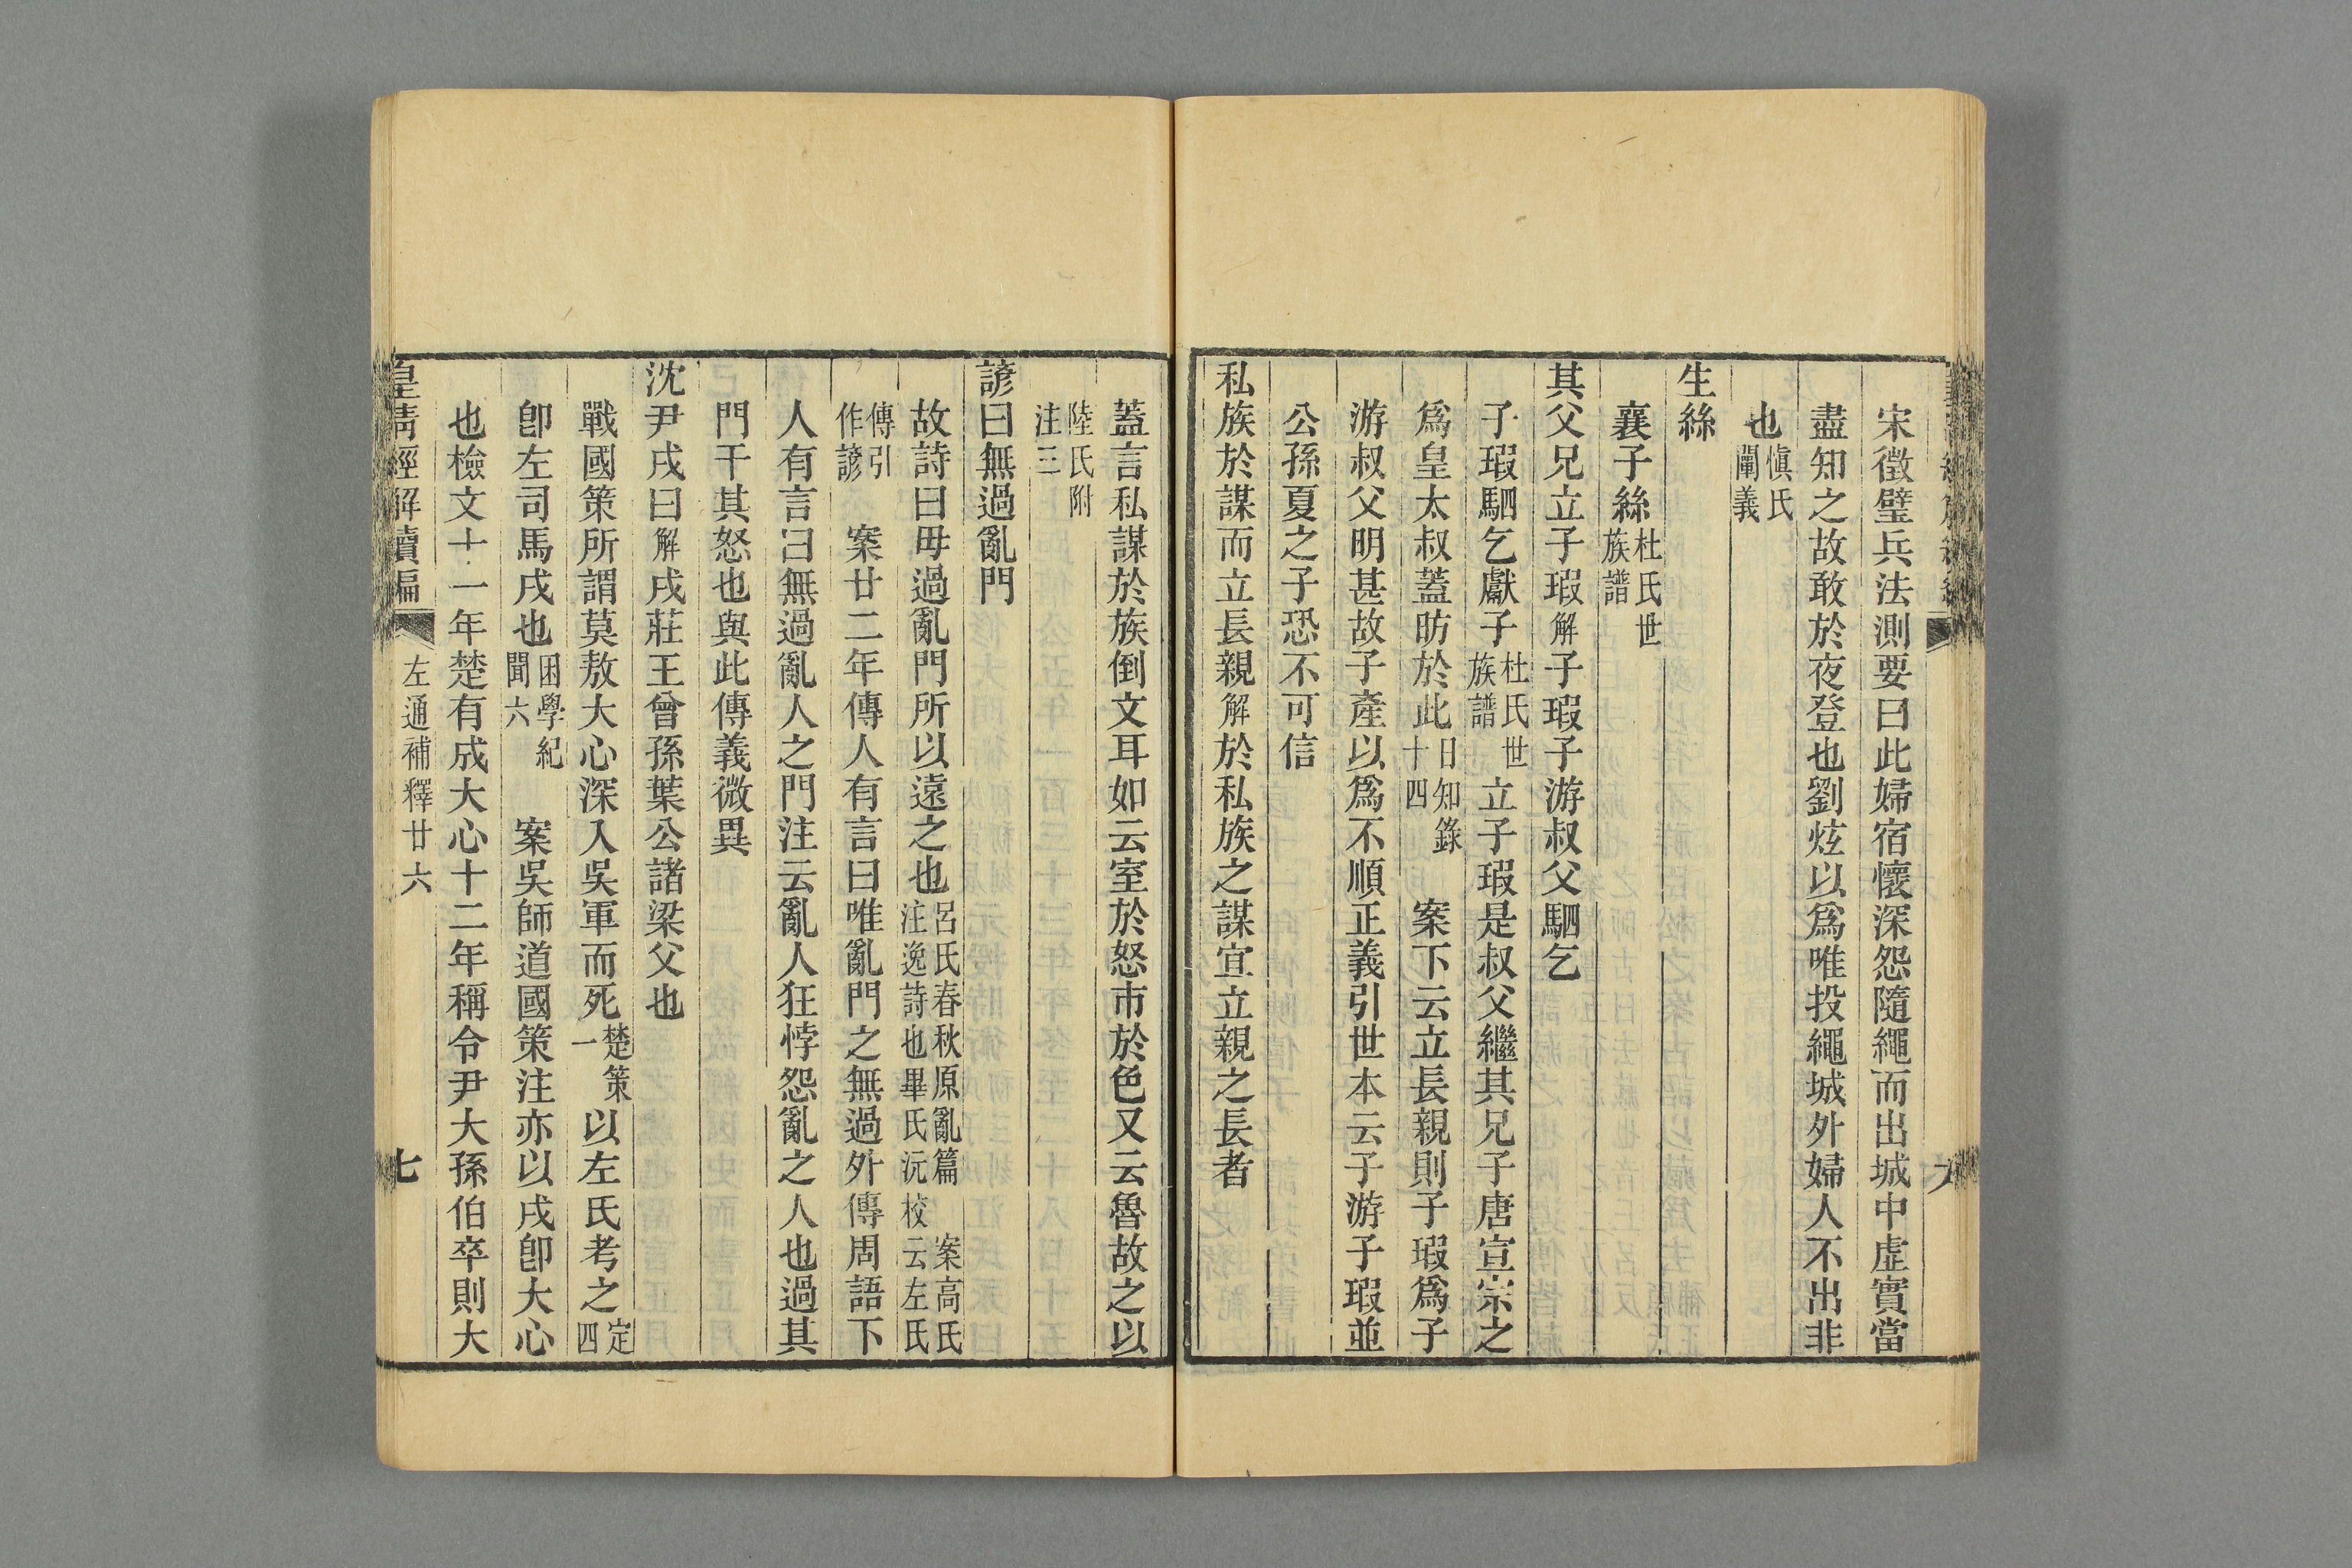 宋徵璧兵法測要曰此婦宿懷深怨隨繩而出城中虛實當
盡知之故敢於夜登也劉炫以爲唯投繩城外婦人不出非
也愼氏闡義
生絲
襄子絲杜氏世族譜
其父兄立子瑕解子瑕子游叔父駟乞
子瑕駟乞獻子杜氏世族譜立子瑕是叔父繼其兄子唐宣宗之
爲皇太叔蓋昉於此日知錄十四 案下云立長親則子瑕爲子
游叔父明甚故子產以爲不順正義引世本云子游子瑕並
公孫夏之子恐不可信
私族於謀而立長親解於私族之謀宜立親之長者
蓋言私謀於族倒文耳如云室於怒市於色又云魯故之以
陸氏附注三
諺曰無過亂門
故詩曰毋過亂門所以遠之也呂氏春秋原亂篇 案高氏注逸詩也畢氏沅校云左氏
傳引作諺 案廿二年傳人有言曰唯亂門之無過外傳周語下
人有言曰無過亂人之門注云亂人狂悖怨亂之人也過其
門干其怒也與此傳義微異
沈尹戌曰解戌莊王曾孫葉公諸梁父也
戰國策所謂莫敖大心深入吳軍而死楚策一以左氏考之定四
卽左司馬戌也困學紀聞六 案吳師道國策注亦以戌卽大心
也檢文十一年楚有成大心十二年稱令尹大孫伯卒則大
皇淸經解續編 左通補釋廿六 七